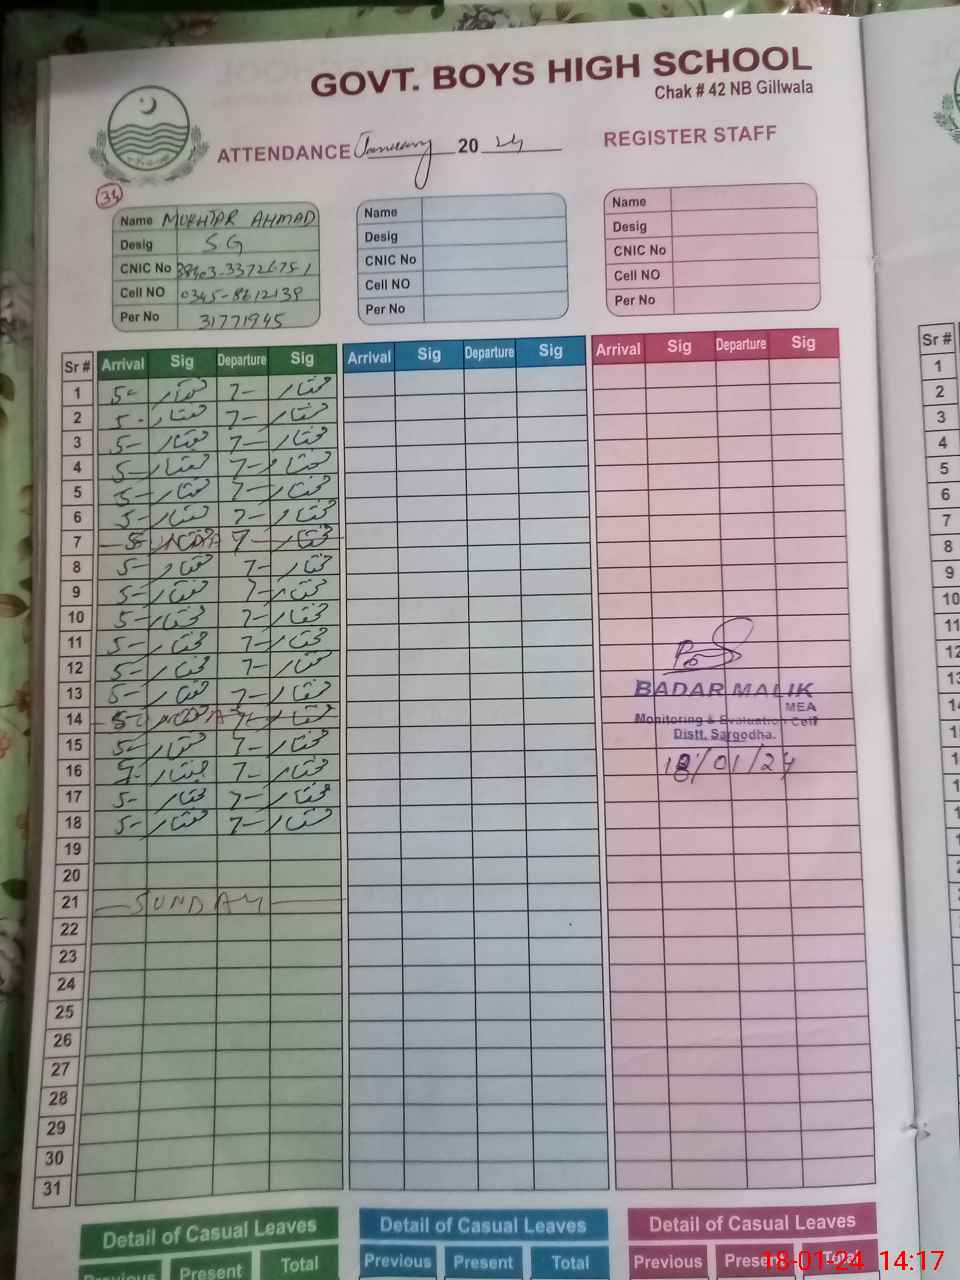 GOVT. BOYS HIGH SCHOOL
Chak # 42 NB Gillwala
ATTENDANCE January 20 24 REGISTER STAFF
34
Name MUKHTAR AHMAD Name Name
Desig S G Desig Desig
CNIC No CNIC No CNIC No
Cell NO 0345-8612139 Cell NO Cell NO
Per No 31771945 Per No Per No
Sr # Arrival Sig Departure Sig Arrival Sig Departure Sig Arrival Sig Departure Sig Sr #
1 5- مختار 7- مختار 1
2 5- مختار 7- مختار 2
3 5- مختار 7- مختار 3
4 5- مختار 7- مختار 4
5 5- مختار 7- مختار 5
6 5- مختار 7- مختار 6
7 5- SUNDAY مختار 7- مختار 7
8 5- مختار 7- مختار 8
9 5- مختار 7- مختار 9
10 5- مختار 7- مختار 10
11 5- مختار 7- مختار 11
12 5- مختار 7- مختار 12
13 5- مختار 7- مختار 13
14 5- SUNDAY مختار 7- مختار
15 5- مختار 7- مختار
16 5- مختار 7- مختار
17 5- مختار 7- مختار
18 5- مختار 7- مختار
BADAR MALIK
MEA
Monitoring & Evaluation Cell
Distt. Sargodha.
18/01/24
19
20
21 SUNDAY
22
23
24
25
26
27
28
29
30
31
Detail of Casual Leaves Detail of Casual Leaves Detail of Casual Leaves
Previous Present Total Previous Present Total Previous Present Total
18-01-24 14:17